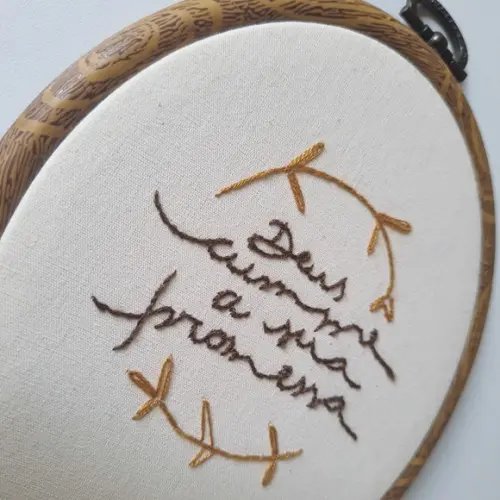 Deus
cumpre
a sua
promessa